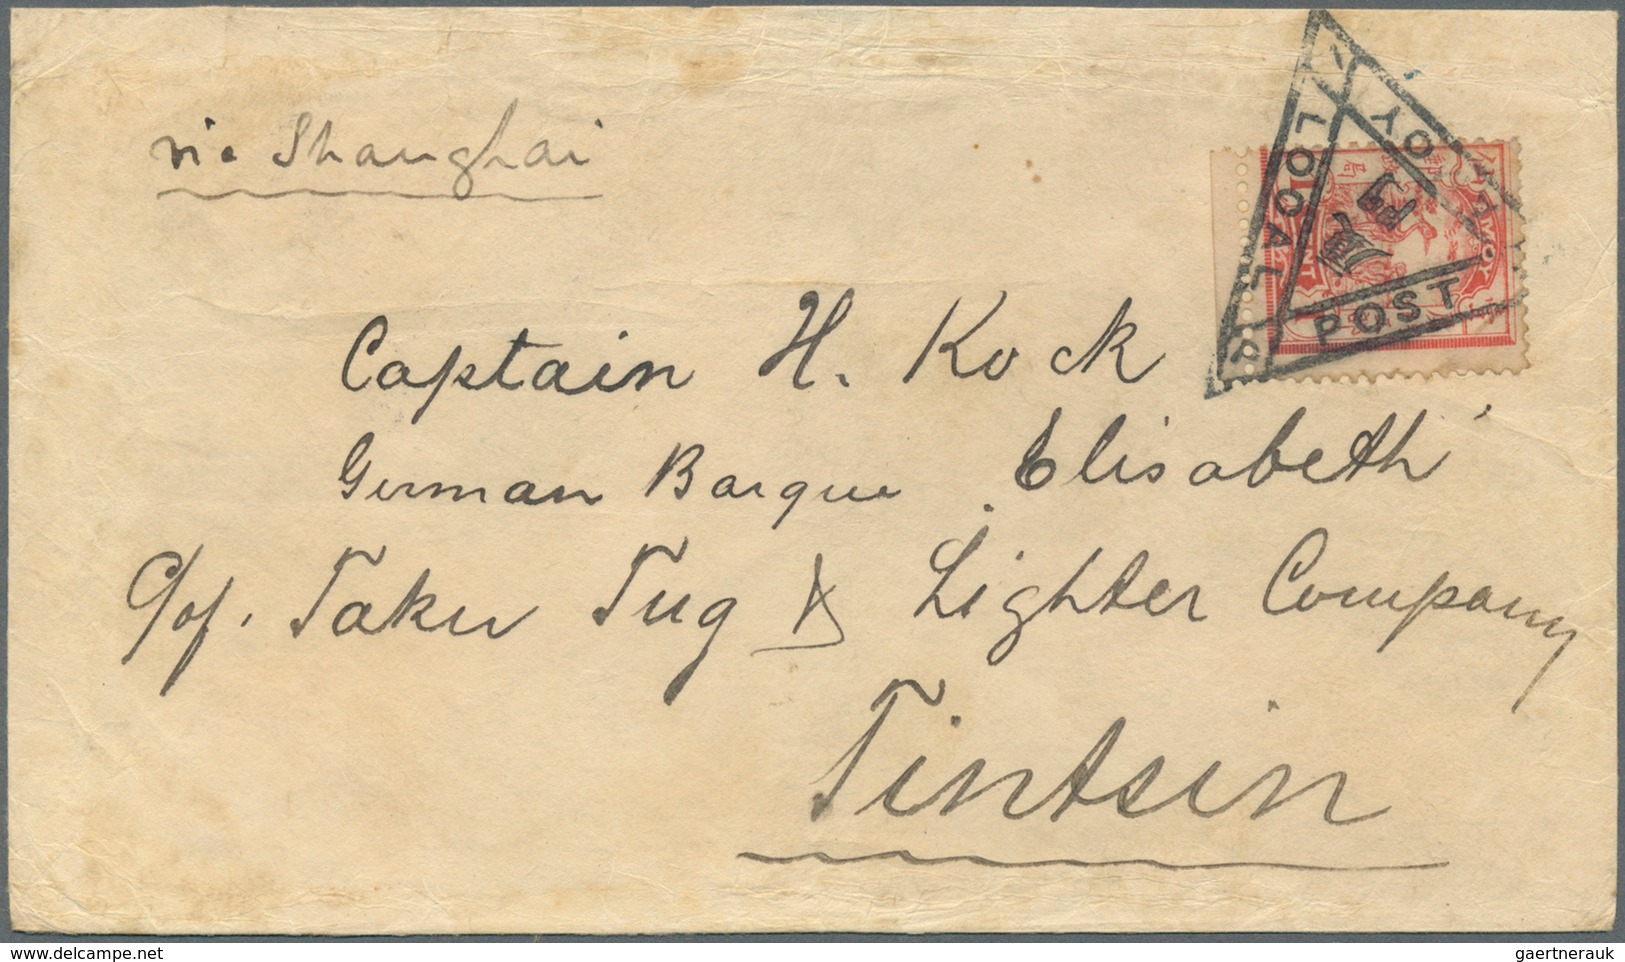 via Shanghai
LOCAL
POST
AMOY
厦門
Captain H. Kock
German Barque Elisabeth
c/of. Taku Tug & Lighter Company
Tintsin
delcampe.net
gaertnerauk